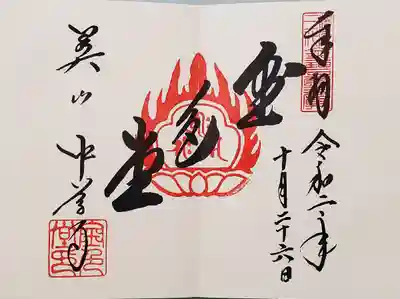 奉拝
令和二年
十月二十六日
金色堂
関山 中尊寺